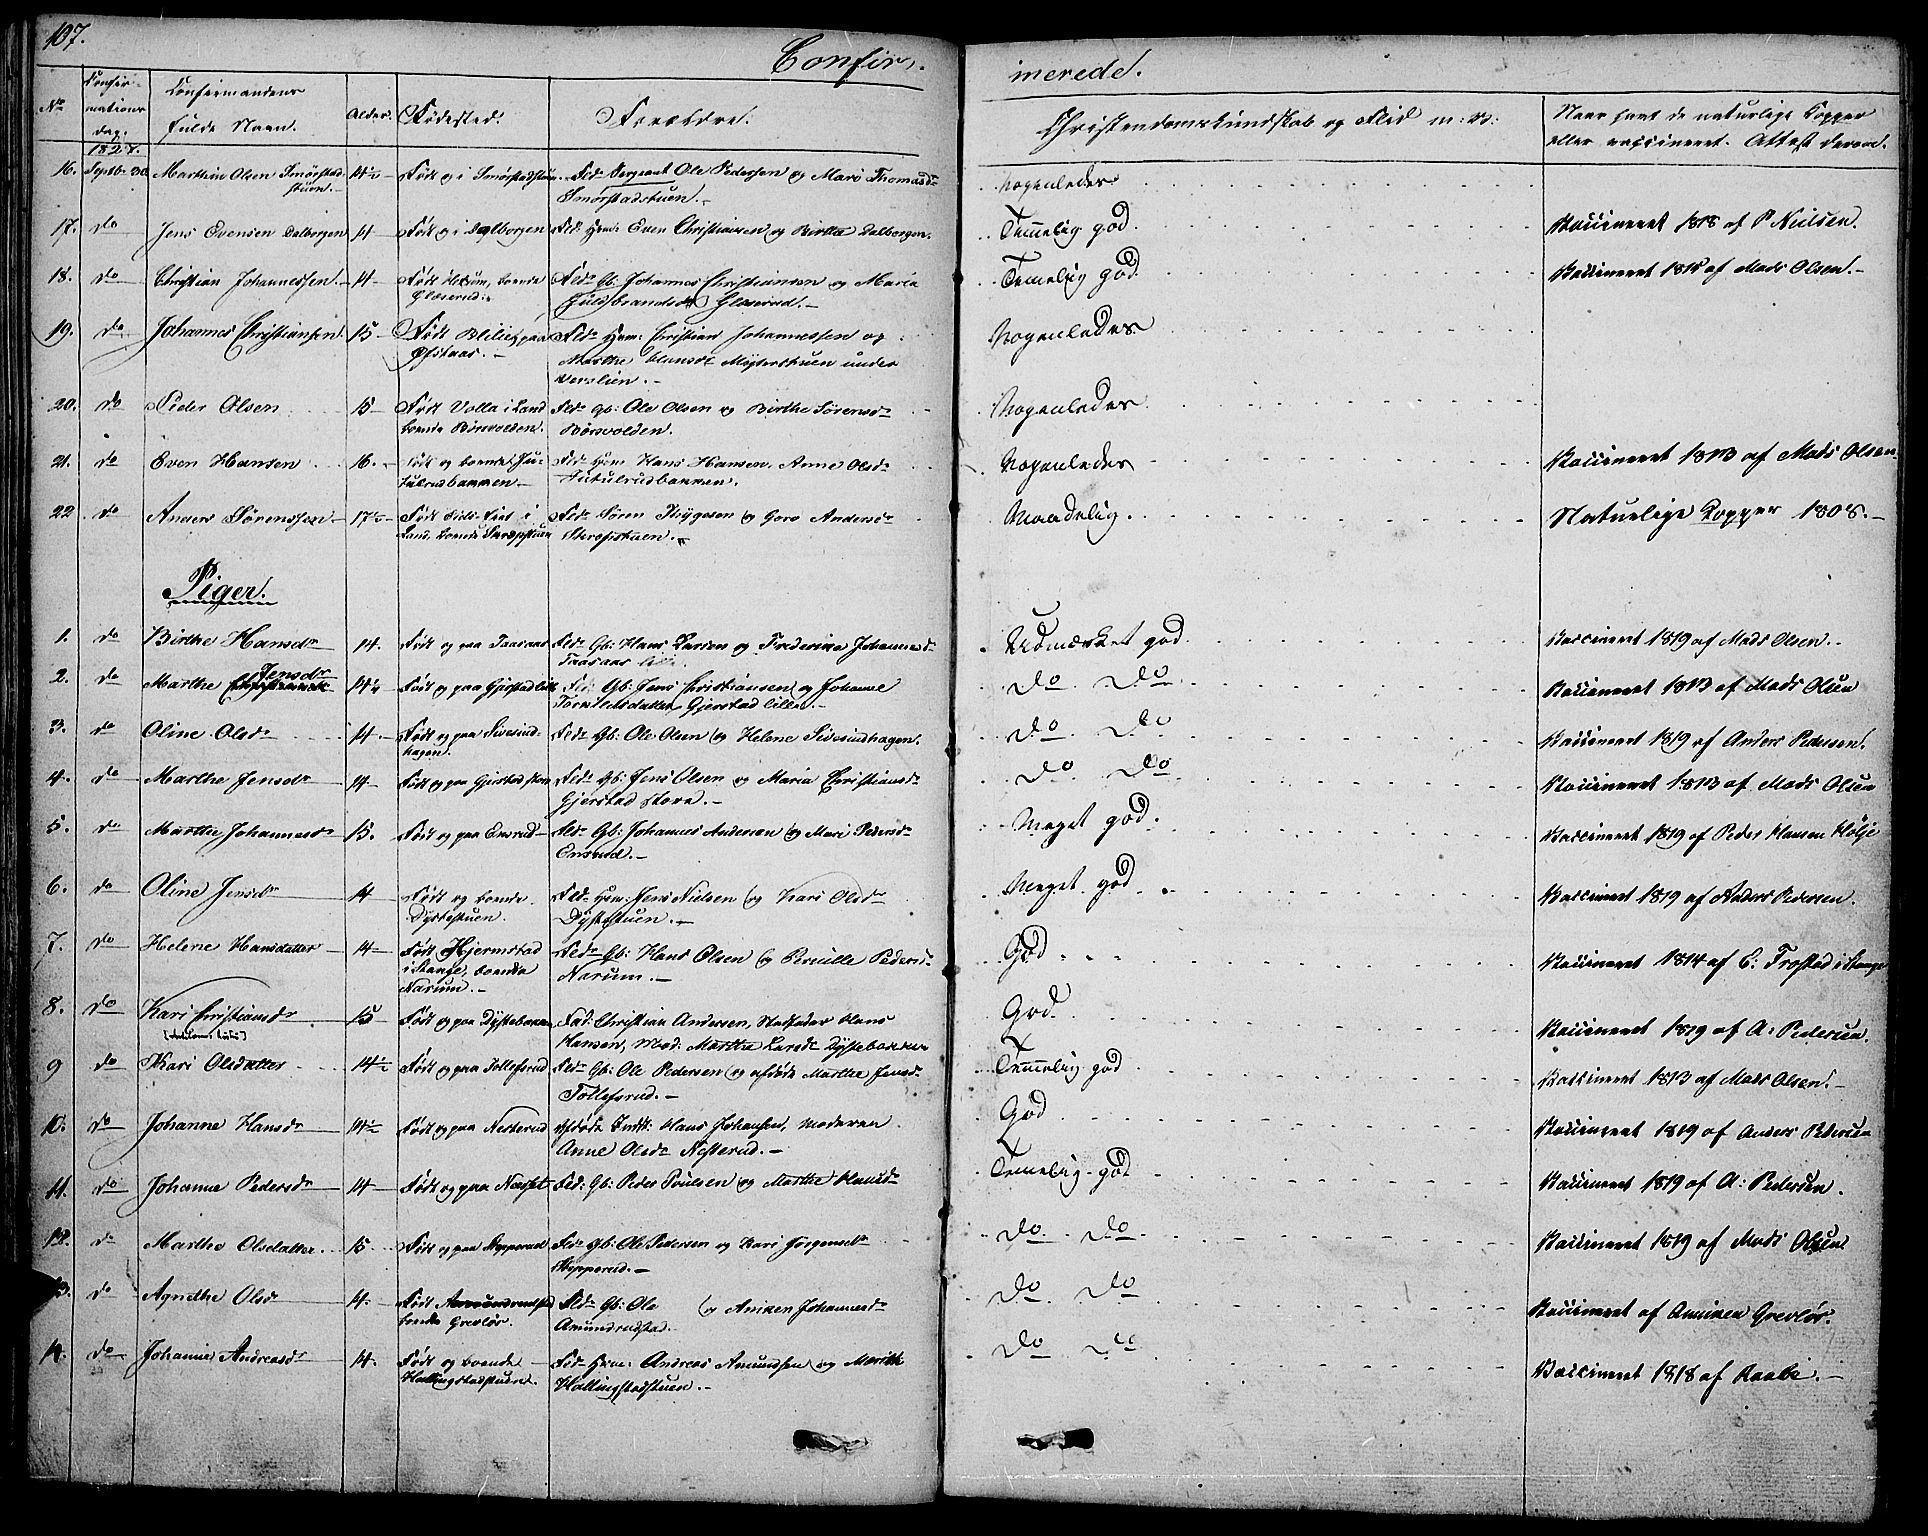 107.
Confir-
merede.
No
Confir-
mations
dag.
Confirmandens
fulde Navn.
Alder.
Fødested.
Forældre.
Christendomskundskab og Flid m: v:
Naar havt de naturlige Kopper
eller vaccineret. Attest derom.
16. Septb: 30 Marthin Olsen Smørstad-
stuen. 14½ Født og i Smørstadstuen. Fld: Sergeant Ole Pedersen og Mari Thomasdr
Smørstadstuen. Nogenledes
17. do Jens Evensen Dalborgen 14 Født og i Dalborgen Fld: Hmd: Even Christiansen og Birthe Dalborgen. Temmelig god. Vaccineret 1818 af P Nielsen.
18. do Christian Johannessen. 14 Født Hexum, boende
Glæserud. Fld: Gb: Johannes Christiansen og Maria
Guldbrandsdr Glæserud. Temelig god. Vaccineret 1815 af Mads Olsen.
19. do Johannes Christiansen 15 Født paa
Ofstaas. Fld: Hmd: Christian Johannessen og
Marthe Hansdr under
Nogenledes.
20. do Peder Olsen 15 Født Volla i Land
boende Børsvolden. Fld: Gb: Ole Olsen og Birthe Sørensdr
Børsvolden. Nogenledes
21. do Even Hansen 16. Født og boende Ju-
tulrudbakken Fld: Hmd Hans Hansen, Anne Olsdr
Jutulrudbakken. Nogenledes Vaccineret 1813 af Mads Olsen
22 do Anders Sørenssen 17½ Født i
Land, boende Fld: Søren Thygesen og Goro Andersdr
Maadelig. Naturlige Kopper 1808.
Piger.
1. do Birthe Hansdr 14. Født og paa Taasaas Fld: Gb: Hans Larsen og Frederikke Johannesdr
Taasaas lille. Udmærket god. Vaccineret 1819 af Mads Olsen.
2. do Marthe Jensdr 14½ Født og paa Gjerstad lille Fld: Gb: Jens Christiansen og Johanne
Gjerstad lille. Do Do Vaccineret 1813 af Mads Olsen
3. do Oline Olsdr 14. Født og paa Sivesind-
hagen Fld: Gb: Ole Olsen og Helene Sivesindhagen. Do Do Vaccineret 1819 af Anders Pedersen.
4. do Marthe Jensdr 14 Født og paa Gjerstad store Fld: Gb: Jens Olsen og Maria Christiansdr
Gjerstad store. Do Do Vaccineret 1813 af Mads Olsen
5. do Marthe Johannesdr 15. Født og paa Ensrud Fld: Gb: Johannes Andersen og Mari Pedersdr
Ensrud. Meget god. Vaccineret 1819 af Peder Hansen Kølse
6. do Oline Jensdr 14 Født og boende
Dystestuen. Fld: Hmd: Jens Nielsen og Kari Olsdr
Dystestuen. Meget god. Vaccineret 1819 af Anders Pedersen.
7. do Helene Hansdatter 14 Født Hjermstad
i Stange, boende
Narum. Fld: Gb: Hans Olsen og Pernille Pedersdr
Narum. God Vaccineret 1814 af C: Frostad i Stange
8. do Kari Christiansdr 15 Født og paa Dystebakken Fad: Christian Andersen, Stedfader Hans
Hansen, Mod: Marthe Larsdr Dystebakken God. Vaccineret 1819 af A: Pedersen.
9 do Kari Olsdatter 14½ Født og paa Tollefsrud Fld: Gb: Ole Pedersen og afdøde Marthe Jensdr
Tollefsrud. Temmelig god Vaccineret 1813 af Mads Olsen.
10. do Johanne Hansdr 14½ Født og paa Nesterud Afdøde Indst: Hans Johansen, Moderen
Anne Olsdr Nesterud. God Vaccineret 1819 af Anders Pedersen
11. do Johanne Pedersdr 14 Født og paa Næshet Fld: Gb: Peder Poulsen og Marthe Hansdr Temelig god Vaccineret 1819 af A: Pedersen.
12. do Marthe Olsdatter 15 Født og paa Kopperud Fld: Gb: Ole Pedersen og Kari Jørgensdr
Kopperud. Do Do Vaccineret 1819 af Mads Olsen
13. do Agnethe Olsdr 14. Født Amundrudstad
boende Greslør. Fld: Gb: Ole og Aniken Johannesdr
Amundrudstad. Do Do Vaccineret af Greslør.
14. do Johanne Andreasdr 14. Født og boende
Hallingstadstuen. Fld: Hmd: Andreas Amundsen og Marthe
Hallingstadstuen. Do Do Vaccineret 1818 af Raabe.